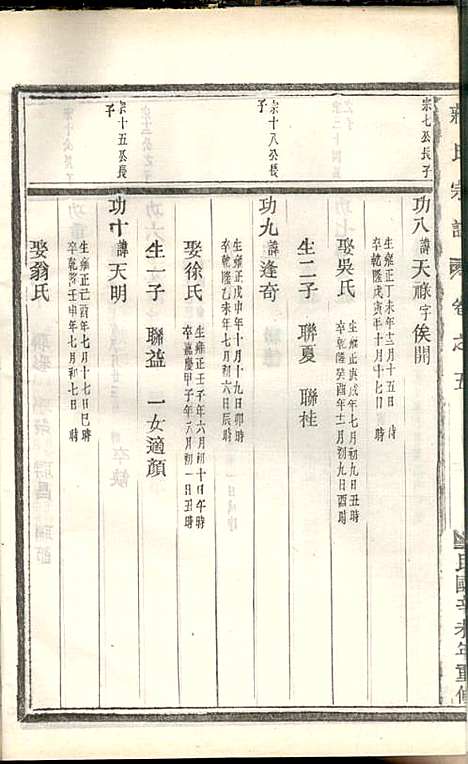 氏宗譜 卷之五 民國辛未年重修
宗七公長子
功八 諱 天祿 字俟開
生雍正丁未年十二月十五日 時
卒乾隆戊寅年十月十七日 時
娶吳氏
生雍正庚戌年七月初九日丑時
卒乾隆癸酉年十二月初九日酉時
生二子 聯夏 聯桂
宗十八公長
子
功九 諱 逢奇
生雍正戊申年十月十九日卯時
卒乾隆乙未年七月初六日辰時
娶徐氏
生雍正壬子年六月初十日午時
卒嘉慶甲子年八月初一日丑時
生一子 聯益 一女適顏
宗十五公長
子
功十 諱 天明
生雍正己酉年七月十七日巳時
卒乾隆壬申年七月初七日 時
娶翁氏